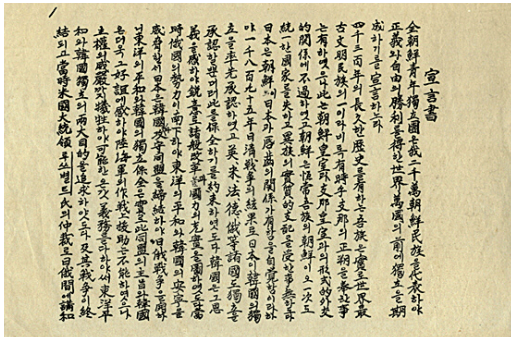 1
宣言書
全朝鮮青年獨立團은我二千萬朝鮮民族을代表하야
正義와自由의勝利를得한世界萬國의前에獨立을期
成하기를宣言하노라
四千三百年의長久한歷史를有한吾族은實로世界最
古文明民族의一이라비록有時乎支那의正朔을奉한事
는有하엿으나此는朝鮮皇室과支那皇室과의形式的外交
的關係에不過하엿고朝鮮은恒常吾族의朝鮮이오一次도
統一한國家를失하고異族의實質的支配를受한事無하도다
日本은朝鮮이日本과脣齒의關係가有함을自覺함이라하
야一千八百九十五年日清戰爭의結果로日本이韓國의獨
立을率先承認하엿고英、米、法、德、俄等諸國도獨立을
承認할뿐더러此를保全하기를約束하엿도다韓國은그恩
義를感하야銳意로諸般改革과國力의充實을圖하엿도다當
時俄國의勢力이南下하야東洋의平和와韓國의安寧을
威脅할새日本은韓國과攻守同盟을締結하야日俄戰爭을開하
니東洋의平和와韓國의獨立保全은實로此同盟의主旨라韓國
은더욱그好誼에感하야陸海軍의作戰上援助는不能하엿으나
主權의威嚴까지犧牲하야可能한온갖義務를다하야써東洋平
和와韓國獨立의兩大目的을追求하얏도다及其戰爭이終
結되고當時米國大統領루쓰벨트氏의仲裁로日俄間에講和